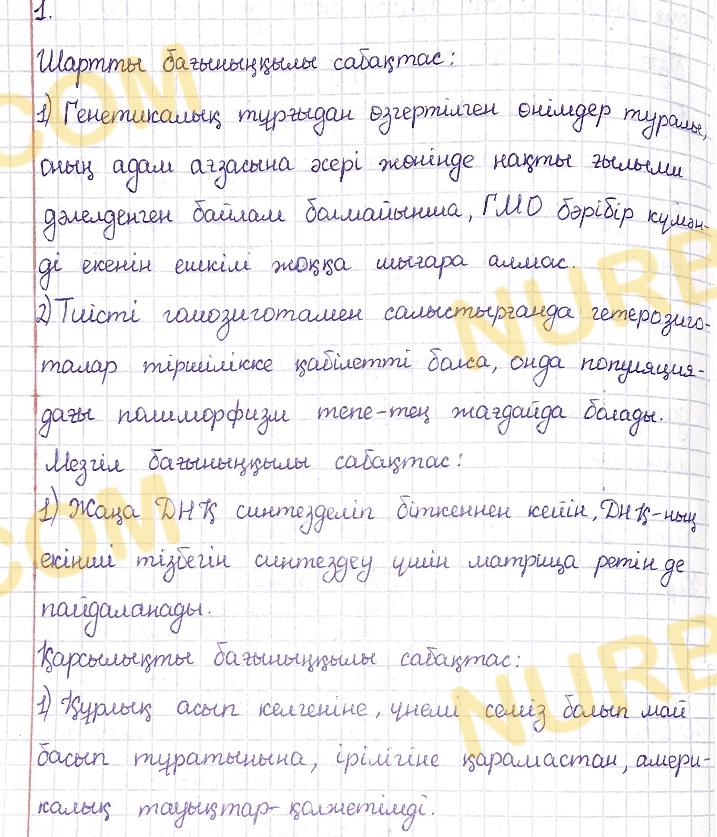 1.
Шартты бағыныңқылы сабақтас:
1) Генетикалық тұрғыдан өзгертілген өнімдер туралы,
оның адам ағзасына әсері жөнінде нақты ғылыми
дәлелденген байлам болмайынша, ГМО бәрібір күмән-
ді екенін ешкім жоққа шығара алмас.
2) Тиісті гомозиготамен салыстырғанда гетерозиго-
талар тіршілікке қабілетті болса, онда популяция-
дағы полиморфизм тепе-тең жағдайда болады.
Мезгіл бағыныңқылы сабақтас:
1) Жаңа ДНҚ синтезделіп біткеннен кейін, ДНҚ-ның
екінші тізбегін синтездеу үшін матрица ретінде
пайдаланады.
Қарсылықты бағыныңқылы сабақтас:
1) Құрлық асып келгеніне, үнемі семіз болып май
басып тұратынына, ірілігіне қарамастан, амери-
калық тауықтар- қолжетімді.
COM
NURB
COM
NURB